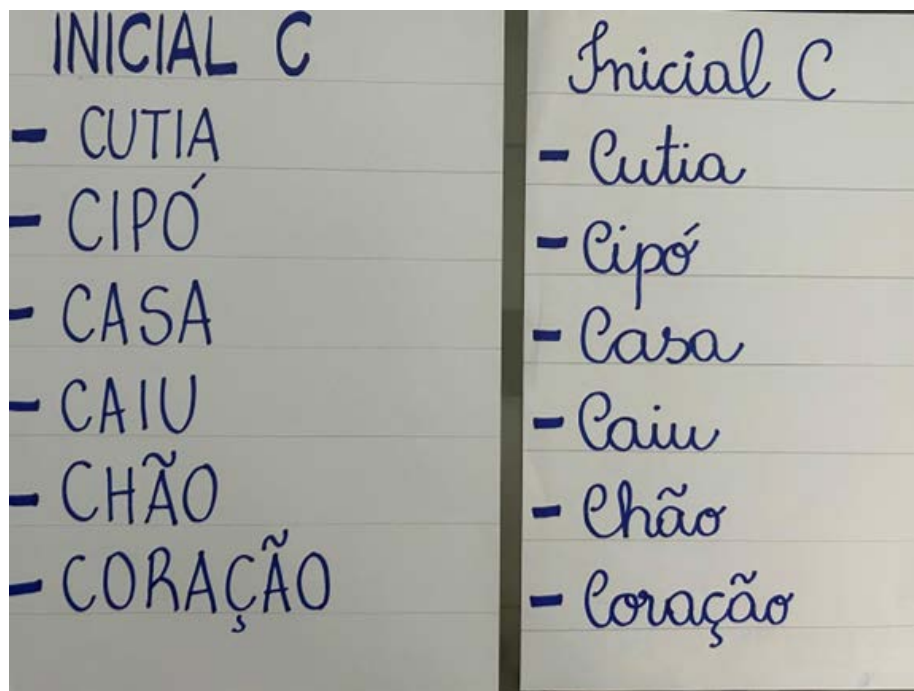 INICIAL C
- CUTIA
- CIPÓ
- CASA
- CAIU
- CHÃO
- CORAÇÃO
Inicial C
- Cutia
- Cipó
- Casa
- Caiu
- Chão
- Coração